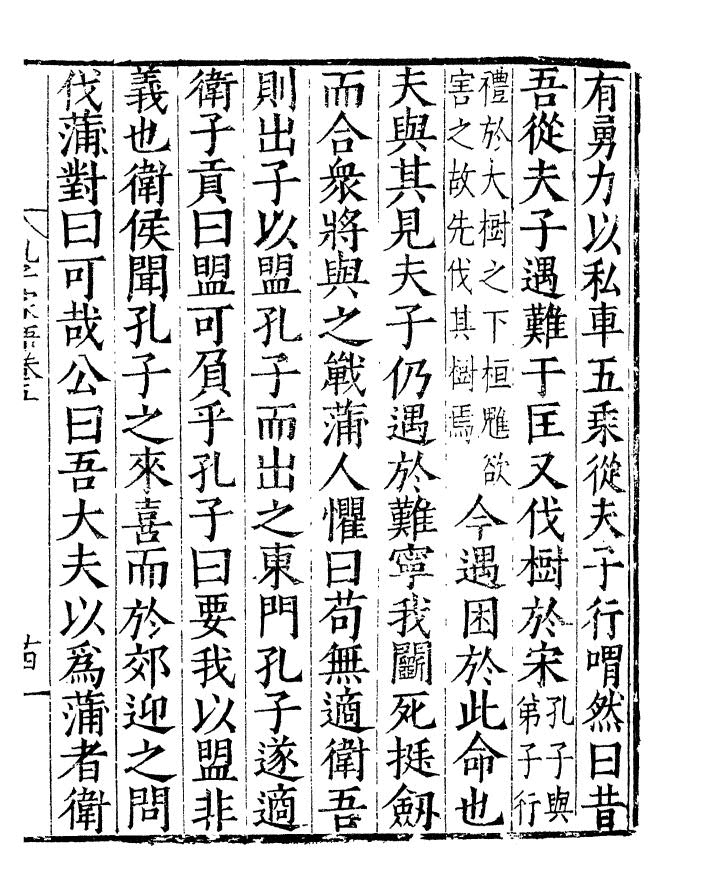 有勇力以私車五乘從夫子行喟然曰昔
吾從夫子遇難于匡又伐樹於宋孔子與弟子行
禮於大樹之下桓魋欲害之故先伐其樹焉今遇困於此命也
夫與其見夫子仍遇於難寧我鬭死挺劔
而合衆將與之戰蒲人懼曰苟無適衛吾
則出子以盟孔子而出之東門孔子遂適
衛子貢曰盟可負乎孔子曰要我以盟非
義也衛侯聞孔子之來喜而於郊迎之問
伐蒲對曰可哉公曰吾大夫以爲蒲者衛
孔子家語卷五